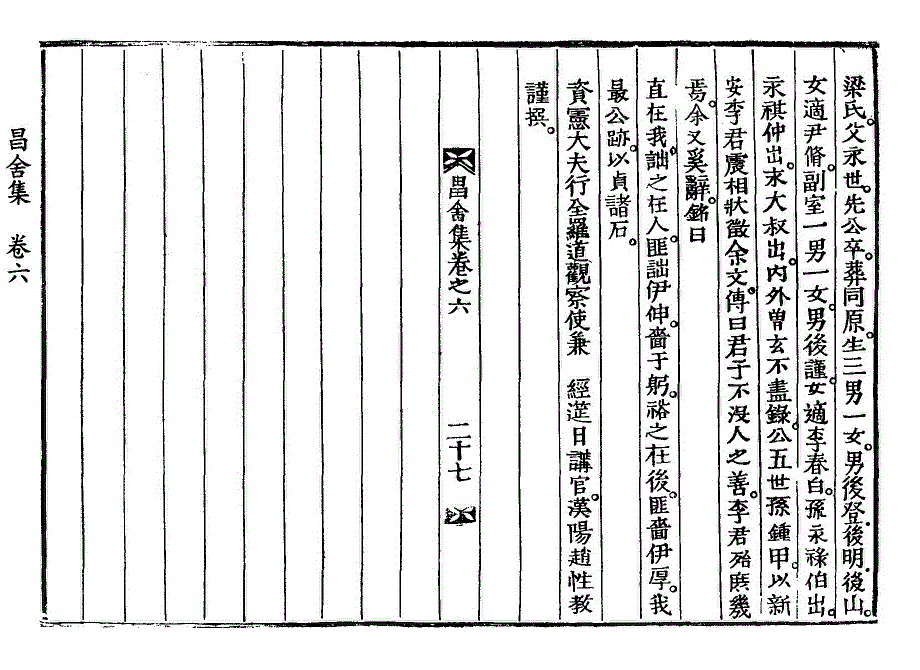 梁氏。父永世。先公卒。葬同原。生三男一女。男後登,後明,後山。
女適尹脩。副室一男一女。男後謹。女適李春白。孫永祿伯出。
永祺仲出。永大叔出。內外曾玄不盡錄。公五世孫鍾甲。以新
安李君震相狀徵余文。傳曰君子不沒人之善。李君殆庶幾
焉。余又奚辭。銘曰
直在我。詘之在人。匪詘伊伸。嗇于躬。裕之在後。匪嗇伊厚。我
最公跡。以貞諸石。
資憲大夫行全羅道觀察使兼 經筵日講官。漢陽趙性教
謹撰。
昌舍集卷之六 二十七
昌舍集 卷六